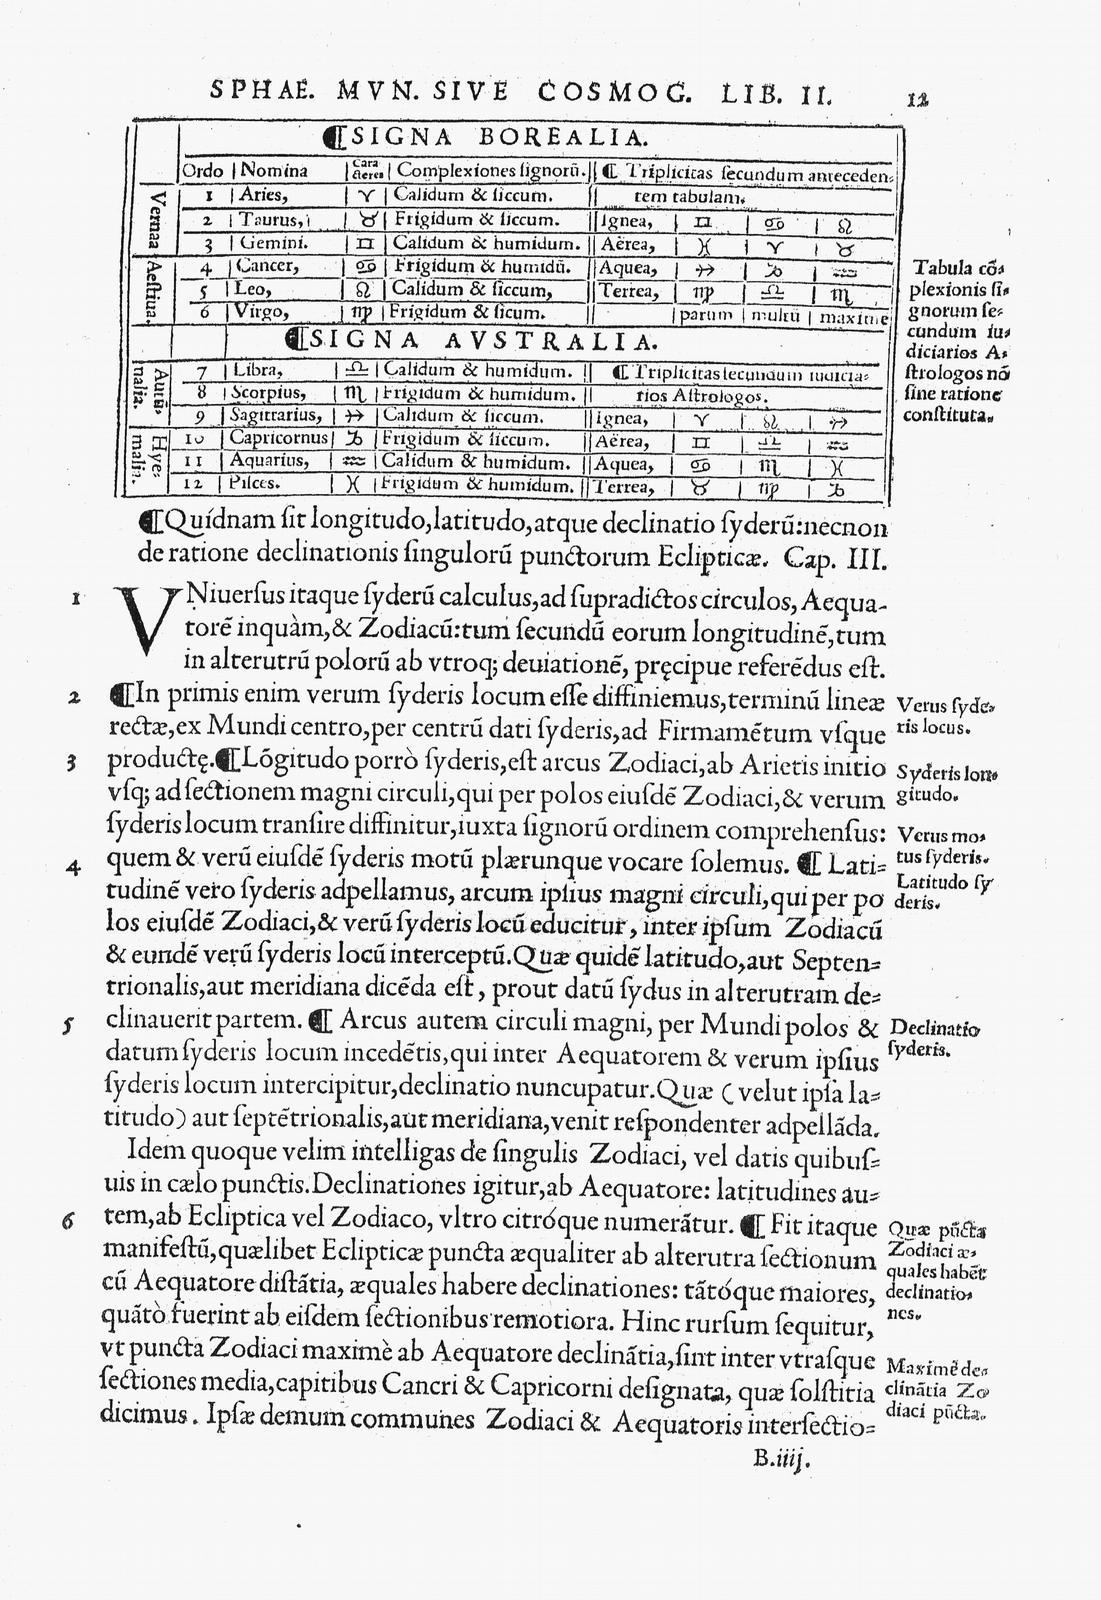 SPHAE. MVN. SIVE COSMOG. LIB. II. 12
¶SIGNA BOREALIA.
Ordo | Nomina | Caracteres | Complexiones signorũ. | ¶ Triplicitas secundum anteceden⸗
Vernaa
1 | Aries, | ♈ | Calidum & siccum. | tem tabulam.
2 | Taurus, | ♉ | Frigidum & siccum. | Ignea, | ♊ | ♋ | ♌
3 | Gemini. | ♊ | Calidum & humidum. | Aërea, | ♓ | ♈ | ♉
Aestiua.
4 | Cancer, | ♋ | Frigidum & humidũ. | Aquea, | ♐ | ♑ | ♒
5 | Leo, | ♌ | Calidum & siccum, | Terrea, | ♍ | ♎ | ♏
6 | Virgo, | ♍ | Frigidum & sicum. | parum | multũ | maxime
¶SIGNA AVSTRALIA.
Autũ⸗
nalia.
7 | Libra, | ♎ | Calidum & humidum. | ¶ Triplicitas secundum iudicia⸗
8 | Scorpius, | ♏ | Frigidum & humidum. | rios Astrologos.
9 | Sagittarius, | ♐ | Calidum & siccum. | Ignea, | ♈ | ♌ | ♐
Hye⸗
malia.
10 | Capricornus | ♑ | Frigidum & siccum. | Aërea, | ♊ | ♎ | ♒
11 | Aquarius, | ♒ | Calidum & humidum. | Aquea, | ♋ | ♏ | ♓
12 | Pisces. | ♓ | Frigidum & humidum. | Terrea, | ♉ | ♍ | ♑
Tabula cõ⸗
plexionis si⸗
gnorum se⸗
cundum iu⸗
diciarios A⸗
strologos nõ
sine ratione
constituta.
¶Quídnam sit longitudo, latitudo, atque declinatio syderũ: necnon
de ratione declinationis singulorũ punctorum Eclipticæ. Cap. III.
1 VNiuersus itaque syderũ calculus, ad supradictos circulos, Aequa-
torẽ inquàm, & Zodiacũ: tum secundũ eorum longitudinẽ, tum
in alterutrũ polorũ ab vtroq; deuiationẽ, pręcipue referẽdus est.
2 ¶In primis enim verum syderis locum esse diffiniemus, terminũ lineæ
rectæ, ex Mundi centro, per centrũ dati syderis, ad Firmamẽtum vsque
Verus syde⸗
ris locus.
3 productę. ¶Lõgitudo porrò syderis, est arcus Zodiaci, ab Arietis initio
vsq; ad sectionem magni circuli, qui per polos eiusdẽ Zodiaci, & verum
Syderis lon⸗
gitudo.
syderis locum transire diffinitur, iuxta signorũ ordinem comprehensus:
Verus mo⸗
tus syderis.
4 quem & verũ eiusdẽ syderis motũ plærunque vocare solemus. ¶ Lati⸗
tudinẽ vero syderis adpellamus, arcum ipsius magni circuli, qui per po
Latitudo sy
deris.
los eiusdẽ Zodiaci, & verũ syderis locũ educitur, inter ipsum Zodiacũ
& eundẽ verũ syderis locũ interceptũ. Quæ quidẽ latitudo, aut Septen⸗
trionalis, aut meridiana dicẽda est, prout datũ sydus in alterutram de⸗
5 clinauerit partem. ¶ Arcus autem circuli magni, per Mundi polos &
datum syderis locum incedẽtis, qui inter Aequatorem & verum ipsius
Declinatio
syderis.
syderis locum intercipitur, declinatio nuncupatur. Quæ (velut ipsa la⸗
titudo) aut septẽtrionalis, aut meridiana, venit respondenter adpellãda.
Idem quoque velim intelligas de singulis Zodiaci, vel datis quibus⸗
uis in cælo punctis. Declinationes igitur, ab Aequatore: latitudines au⸗
6 tem, ab Ecliptica vel Zodiaco, vltro citróque numerãtur. ¶ Fit itaque
manifestũ, quælibet Eclipticæ puncta æqualiter ab alterutra sectionum
cũ Aequatore distãtia, æquales habere declinationes: tãtóque maiores,
quãtò fuerint ab eisdem sectionibus remotiora. Hinc rursum sequitur,
Quæ pũcta
Zodiaci æ⸗
quales habẽt
declinatio⸗
nes.
vt puncta Zodiaci maximè ab Aequatore declinãtia, sint inter vtrasque
sectiones media, capitibus Cancri & Capricorni designata, quæ solstitia
dicimus. Ipsæ demum communes Zodiaci & Aequatoris intersectio⸗
Maximẽ de⸗
clinãtia Zo
diaci pũcta.
B.iiij.